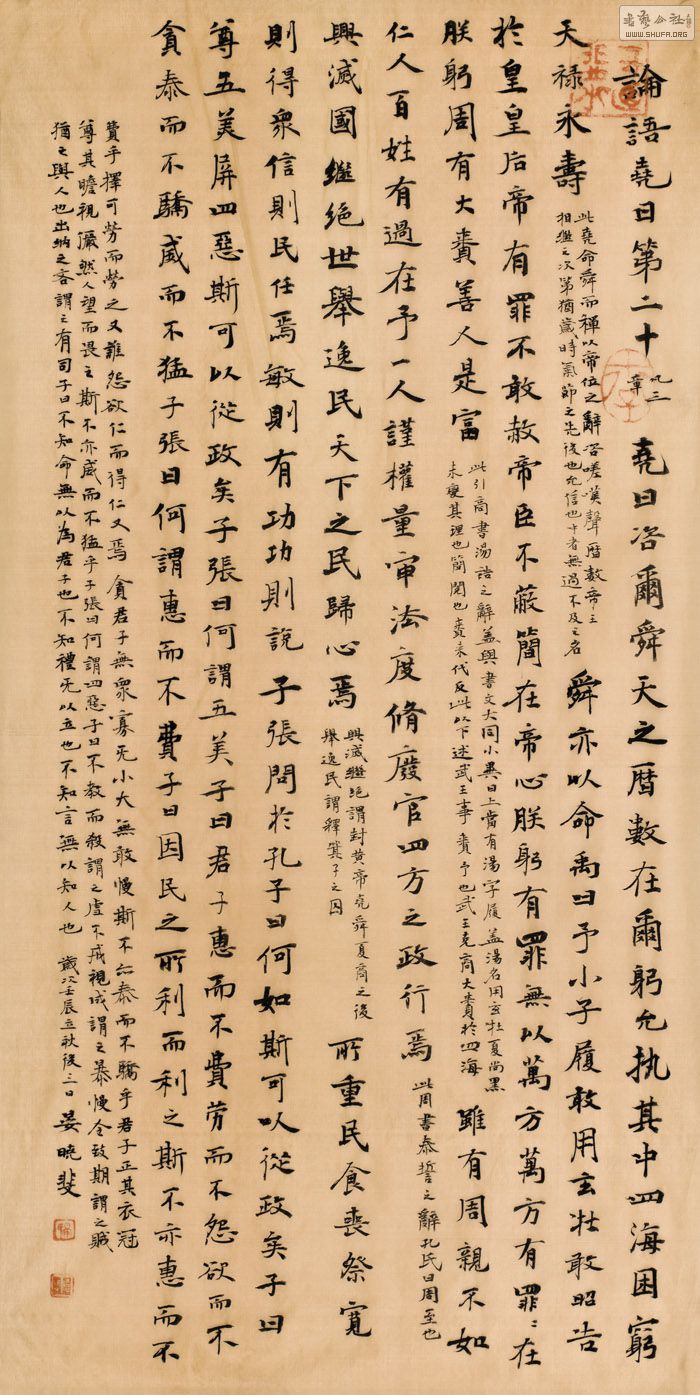 論語堯曰第二十
凡三
章
堯曰咨爾舜天之曆數在爾躬允执其中四海困窮
天禄永壽
此堯命舜而禪以帝位之辭咨嗟嘆聲曆数帝王
相继之次第猶歲時氣節之先後也允信也中者無過不及之名
舜亦以命禹曰予小子履敢用玄牡敢昭告
於皇皇后帝有罪不敢赦帝臣不蔽簡在帝心朕躬有罪無以萬方萬方有罪〻在
朕躬周有大賚善人是富
此引商書湯誥之辭蓋與書文大同小異曰上當有湯字履蓋湯名用玄牡夏尚黑
未變其理也簡閱也賚来代反此以下述武王事賚予也武王克商大賚於四海
雖有周親不如
仁人百姓有過在予一人謹權量审法度脩廢官四方之政行焉
此周書泰誓之辭孔氏曰周至也
興滅國继绝世舉逸民天下之民歸心焉
興滅继绝謂封黄帝尧舜夏商之後
舉逸民謂釋箕子之囚
所重民食喪祭寬
則得衆信則民任焉敏則有功功則說子張問於孔子曰何如斯可以從政矣子曰
尊五美屏四惡斯可以從政矣子張曰何謂五美子曰君子惠而不費劳而不怨欲而不
貪泰而不驕威而不猛子張曰何謂惠而不費子曰因民之所利而利之斯不亦惠而不
費乎擇可勞而勞之又誰怨欲仁而得仁又焉貪君子無衆寡无小大無敢慢斯不亦泰而不驕乎君子正其衣冠
尊其瞻視儼然人望而畏之斯不亦威而不猛乎子張曰何謂四惡子曰不教而殺謂之虐不戒視成謂之暴慢令致期謂之賊
猶之與人也出纳之吝謂之有司子曰不知命無以為君子也不知禮无以立也不知言無以知人也 歲次壬辰立秋後三日 晏曉斐
書藝公社
WWW.SHUFA.ORG